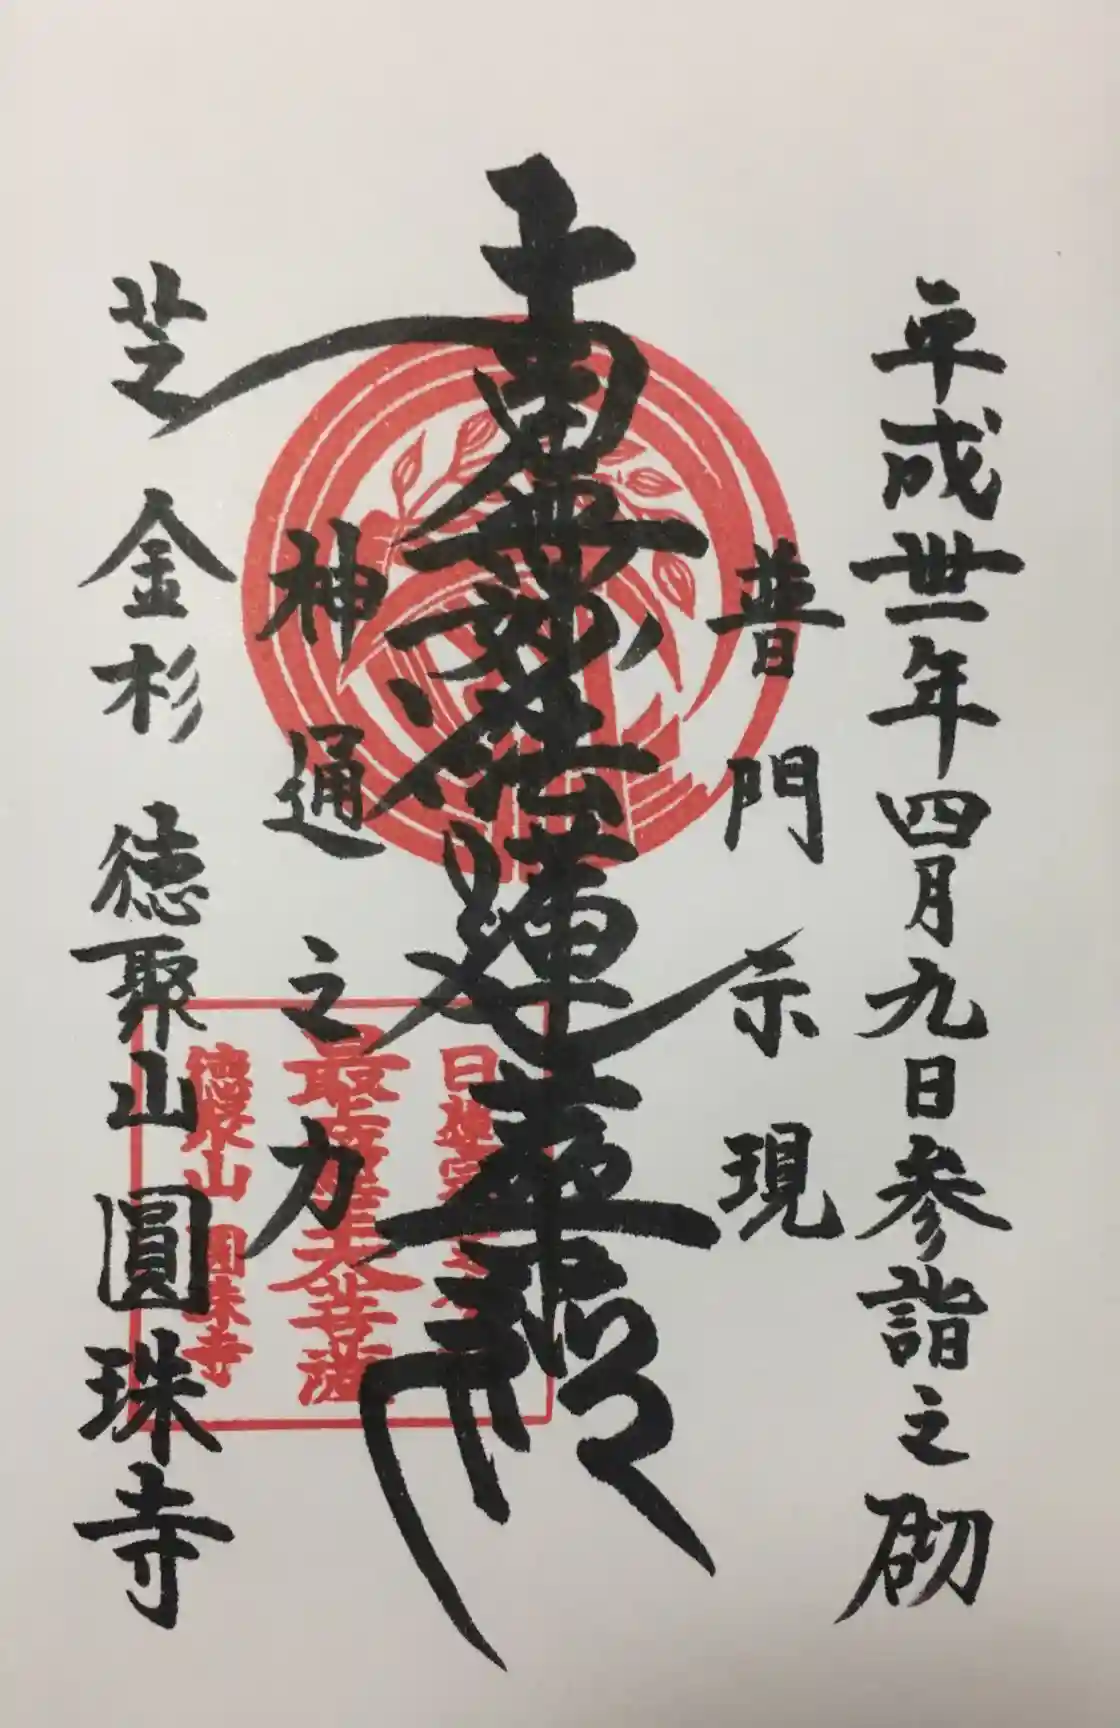 平成卅一年四月九日参詣之砌
普門示現
南無妙法蓮華經
神通之力
芝金杉 德聚山 圓珠寺
日蓮宗
最
大菩薩
德聚山 圓珠寺